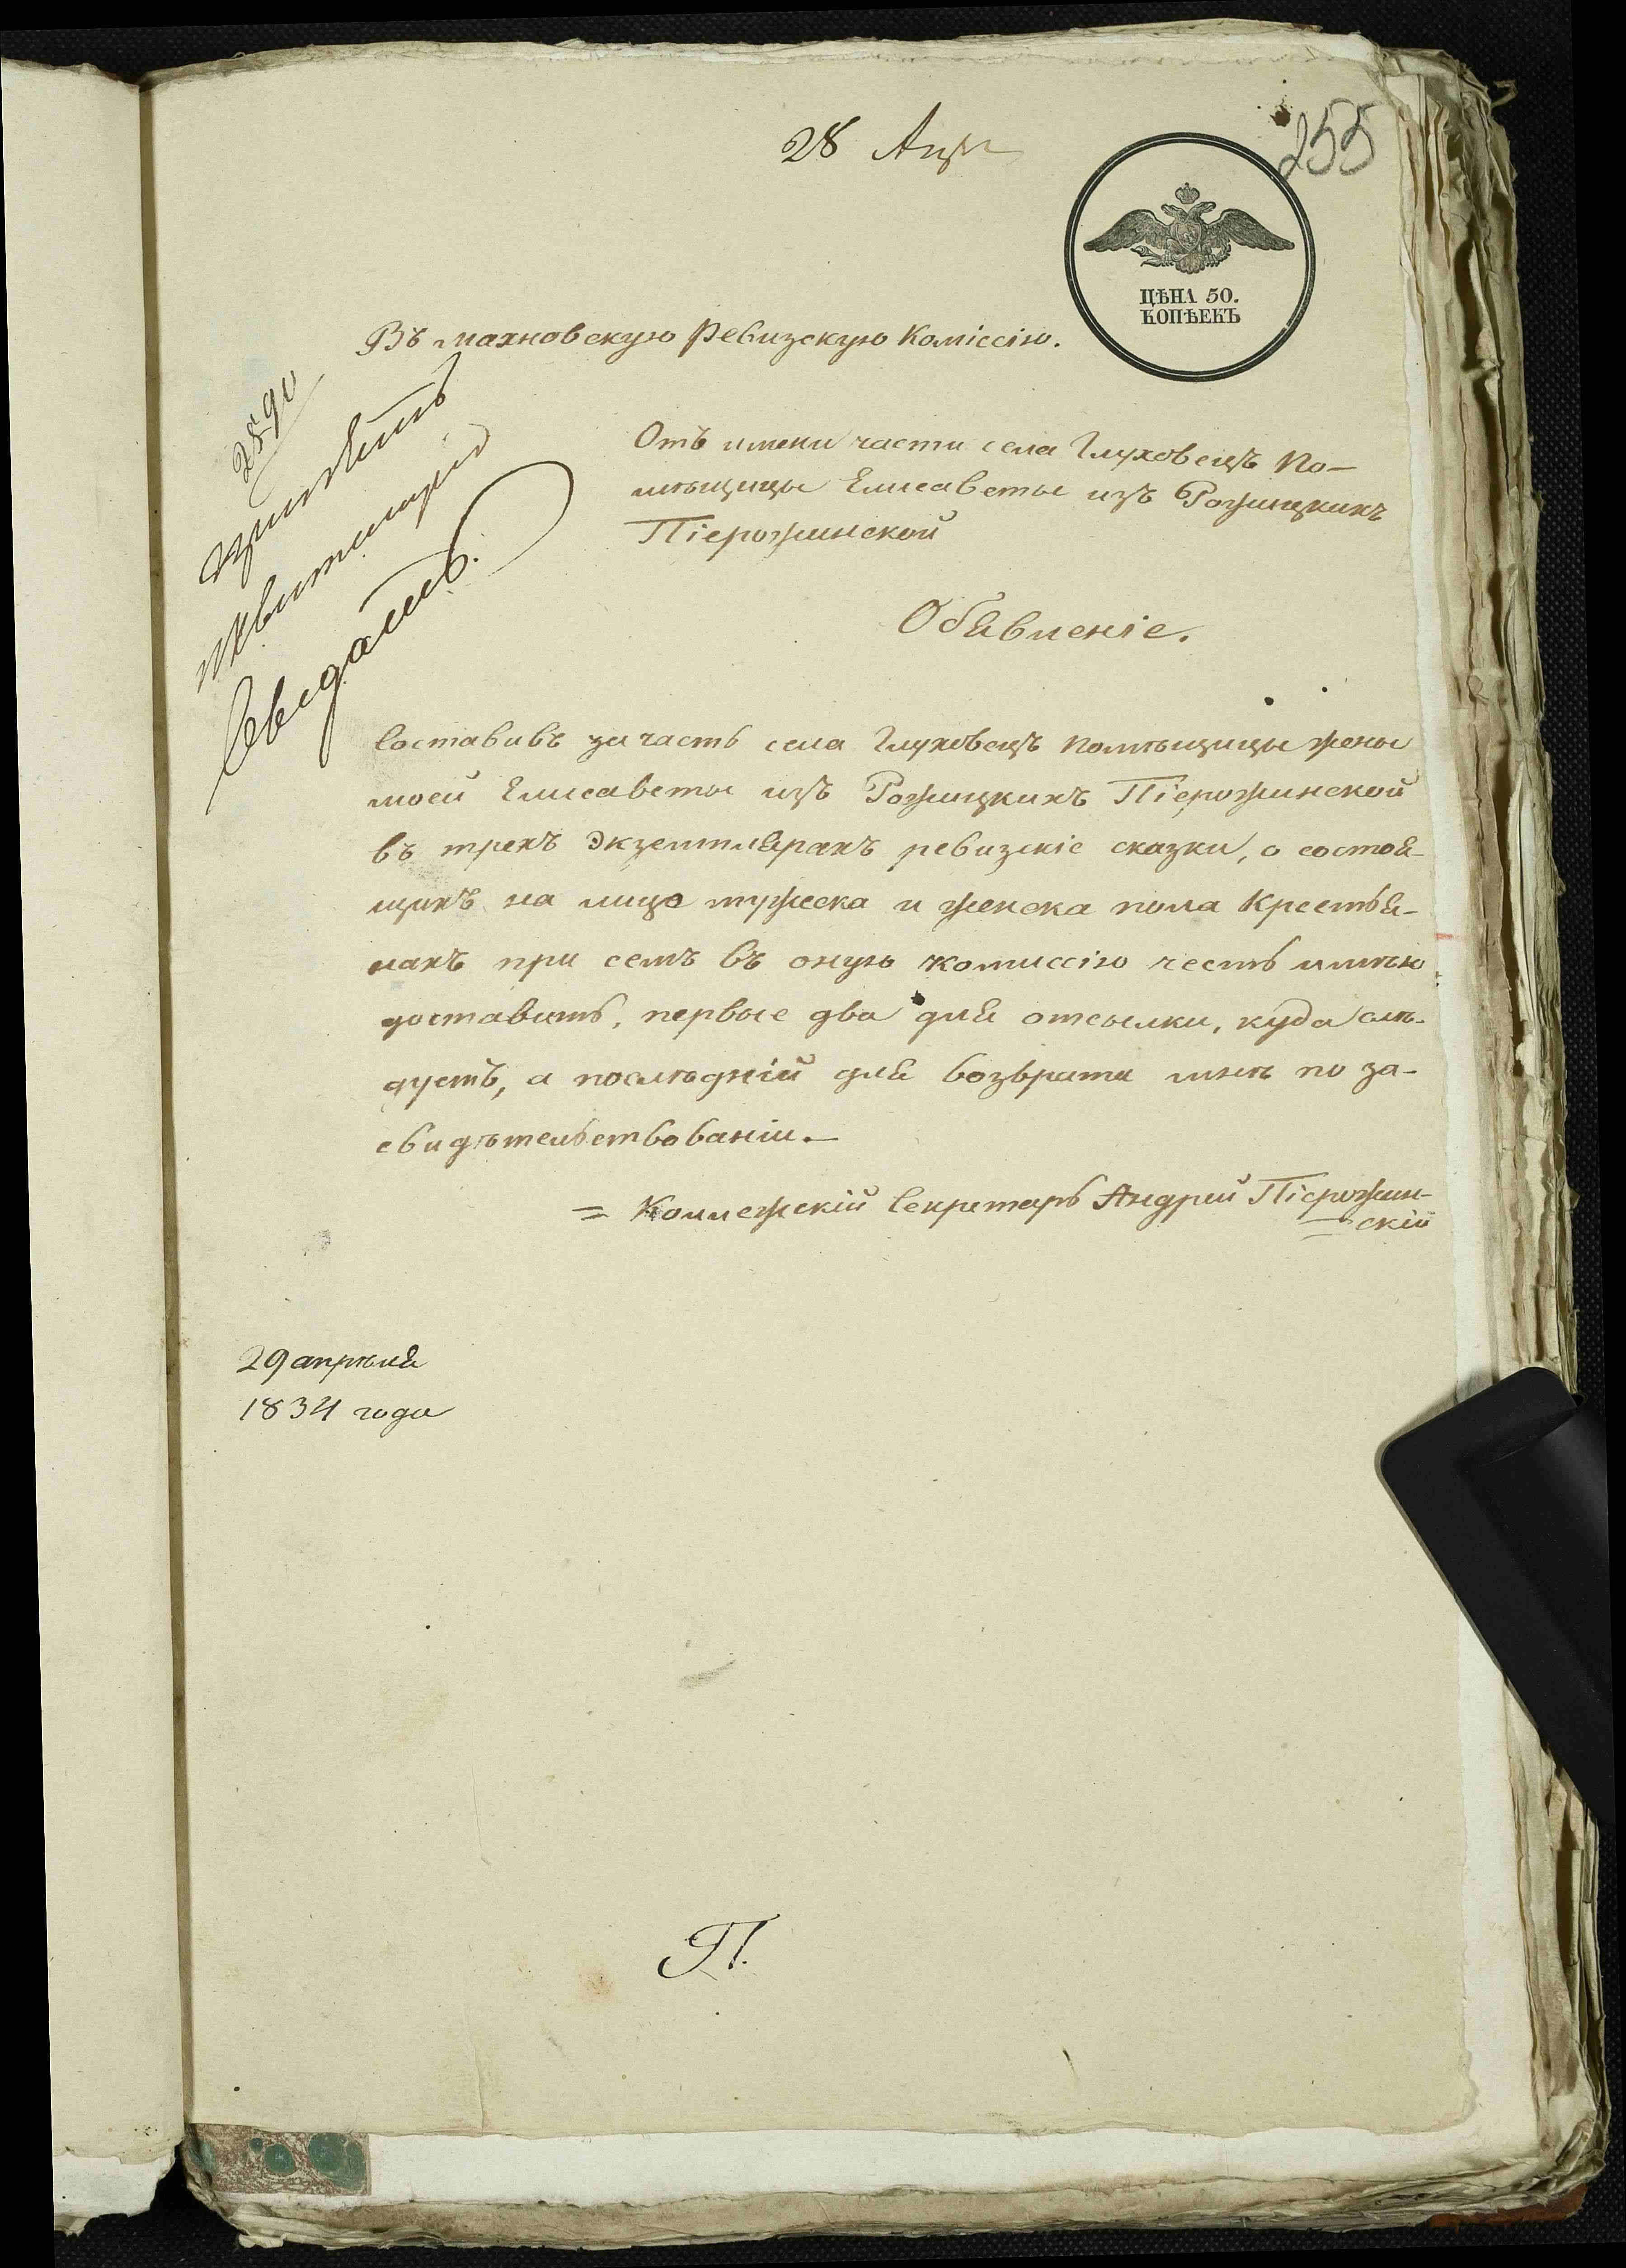 28 Апр
255
ЦѢНА 50.
КОПѢЕКЪ
Въ махновскую Ревизскую Коміссію.
Отъ имени части села Глуховецъ По-
мѣщицы Елисаветы изъ Рожицкихъ
Піерожинской
Обявленіе.
2890
принять
квитанцію
Составивъ за часть села Глуховецъ помѣщицы жены
моей Елисаветы изъ Рожицкихъ Піерожинской
въ трехъ Экземплярахъ ревизскіе сказки, о состоя-
щихъ на лицо мужеска и женска пола Крестья-
нахъ при семъ въ оную комиссію честь имѣю
доставить, первые два для отсылки, куда слѣ-
дуетъ, а послѣдній для возврата мнѣ по за-
свидѣтельствованіи.—
= Коллежскій Секретарь Андрей Піерожин-
=скій
29 апрѣля
1834 года
П.